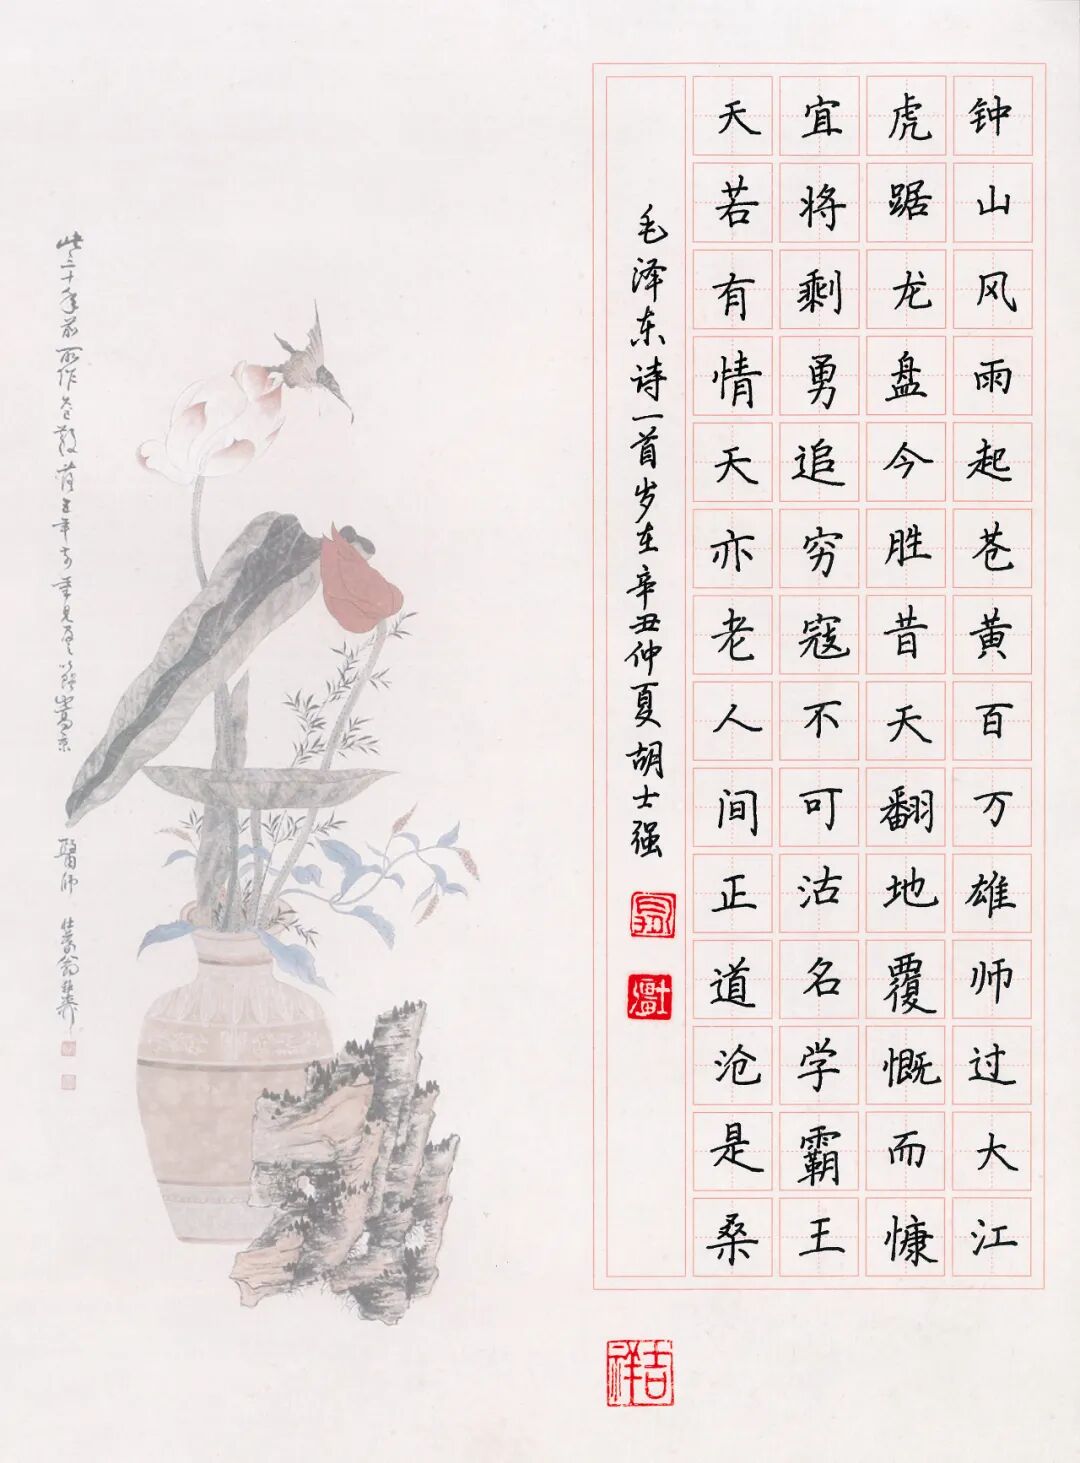 钟山风雨起苍黄百万雄师过大江
虎踞龙盘今胜昔天翻地覆慨而慷
宜将剩勇追穷寇不可沽名学霸王
天若有情天亦老人间正道沧是桑
毛泽东诗一首岁在辛丑仲夏胡士强
吉祥
此三十年前所作